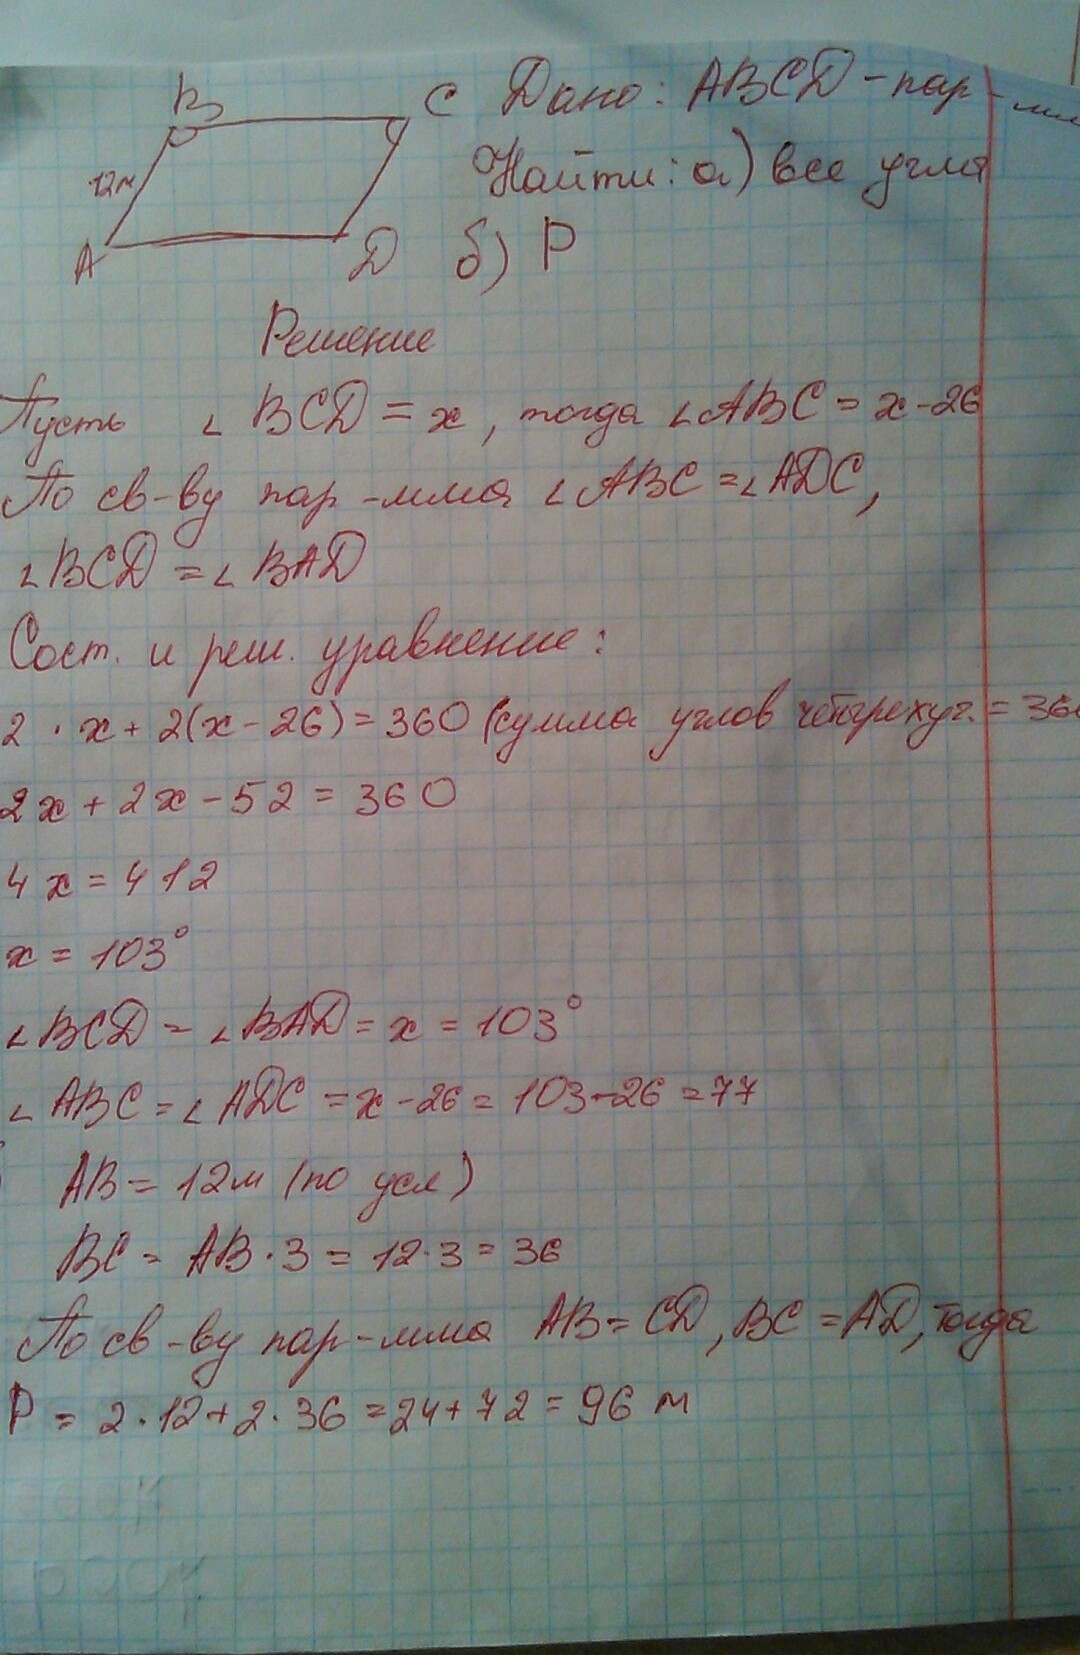 B
C Дано: ABCD - пар-мм
12м
Найти: а) все угла
A
D б) P
Решение
Пусть ∠ BCD = x, тогда ∠ABC = x - 26
По св-ву пар-мма ∠ABC = ∠ADC,
∠BCD = ∠BAD
Сост. и реш. уравнение:
2 · x + 2(x - 26) = 360 (сумма углов четырехуг. = 360
2x + 2x - 52 = 360
4x = 412
x = 103°
∠BCD = ∠BAD = x = 103°
∠ABC = ∠ADC = x - 26 = 103 - 26 = 77
AB = 12м (по усл)
BC = AB · 3 = 12 · 3 = 36
По св-ву пар-мма AB = CD, BC = AD, тогда
P = 2 · 12 + 2 · 36 = 24 + 72 = 96 м